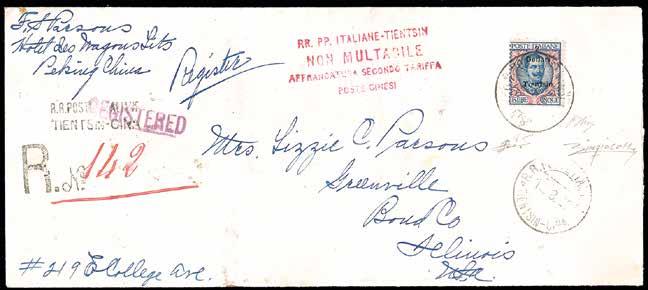 F. S Parsons
Hotel des Wagons Lits
Peking China
Register
RR. PP. ITALIANE-TIENTSIN
NON MULTABILE
AFFRANCATURA SECONDO TARIFFA
POSTE CINESI
POSTE ITALIANE
Tientsin
R.R. POSTE ITALIANE
TIENTSIN-CINA
REGISTERED
R. No 142
Mrs. Lizzie C. Parsons
Greenville
Bond Co
Illinois
USA
TIENTSIN-CINA
#219 E College Ave.